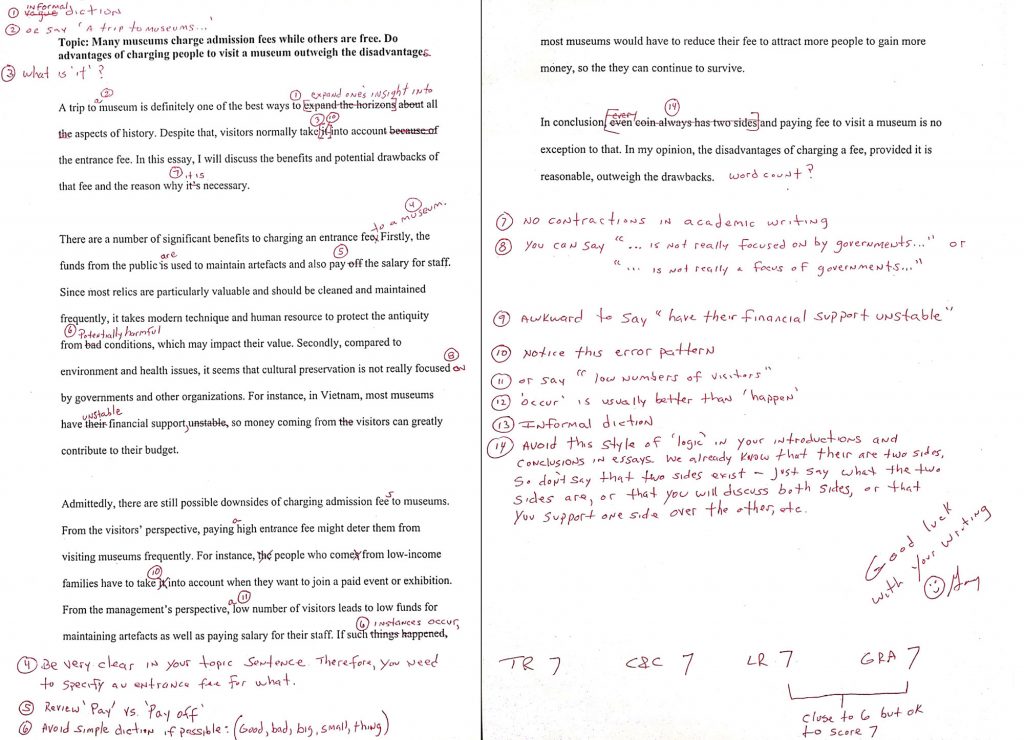 ① INFORMAL vague DICTION
② OR SAY "A TRIP TO MUSEUMS..."
Topic: Many museums charge admission fees while others are free. Do
advantages of charging people to visit a museum outweigh the disadvantages.
③ WHAT IS 'IT'?
② ① EXPAND ONE'S INSIGHT INTO
A trip to a museum is definitely one of the best ways to expand the horizons about all
③ ⑩
the aspects of history. Despite that, visitors normally take it into account because of
the entrance fee. In this essay, I will discuss the benefits and potential drawbacks of
⑦ IT IS
that fee and the reason why it's necessary.
④
TO A MUSEUM.
There are a number of significant benefits to charging an entrance fee. Firstly, the
ARE ⑤
funds from the public is used to maintain artefacts and also pay off the salary for staff.
Since most relics are particularly valuable and should be cleaned and maintained
frequently, it takes modern technique and human resource to protect the antiquity
⑥ Potentially harmful
from bad conditions, which may impact their value. Secondly, compared to
⑧
environment and health issues, it seems that cultural preservation is not really focused ON
by governments and other organizations. For instance, in Vietnam, most museums
UNSTABLE
have their financial support, unstable, so money coming from the visitors can greatly
contribute to their budget.
Admittedly, there are still possible downsides of charging admission fees to museums.
From the visitors' perspective, paying a high entrance fee might deter them from
visiting museums frequently. For instance, the people who comes from low-income
⑩
families have to take it into account when they want to join a paid event or exhibition.
⑪
From the management's perspective, a low number of visitors leads to low funds for
⑥ INSTANCES OCCUR,
maintaining artefacts as well as paying salary for their staff. If such things happened,
④ Be very clear in your topic sentence. Therefore, you need
to specify an entrance fee for what.
⑤ Review 'Pay' vs. 'Pay off'
⑥ Avoid simple diction if possible: (Good, bad, big, small, thing)
most museums would have to reduce their fee to attract more people to gain more
money, so the they can continue to survive.
⑭
every
In conclusion, even coin always has two sides and paying fee to visit a museum is no
exception to that. In my opinion, the disadvantages of charging a fee, provided it is
reasonable, outweigh the drawbacks. WORD COUNT?
⑦ NO CONTRACTIONS IN ACADEMIC WRITING
⑧ YOU CAN SAY "... IS NOT REALLY FOCUSED ON BY GOVERNMENTS..." OR
"... IS NOT REALLY A FOCUS OF GOVERNMENTS..."
⑨ AWKWARD TO SAY "HAVE THEIR FINANCIAL SUPPORT UNSTABLE"
⑩ NOTICE THIS ERROR PATTERN
⑪ OR SAY "LOW NUMBERS OF VISITORS"
⑫ 'OCCUR' IS USUALLY BETTER THAN 'HAPPEN'
⑬ INFORMAL DICTION
⑭ AVOID THIS STYLE OF 'LOGIC' IN YOUR INTRODUCTIONS AND
CONCLUSIONS IN ESSAYS. WE ALREADY KNOW THAT THEIR ARE TWO SIDES,
SO DON'T SAY THAT TWO SIDES EXIST – JUST SAY WHAT THE TWO
SIDES ARE, OR THAT YOU WILL DISCUSS BOTH SIDES, OR THAT
YOU SUPPORT ONE SIDE OVER THE OTHER, ETC.
Good luck
with your writing
TR 7 C&C 7 LR 7 GRA 7
close to 6 but ok
to score 7